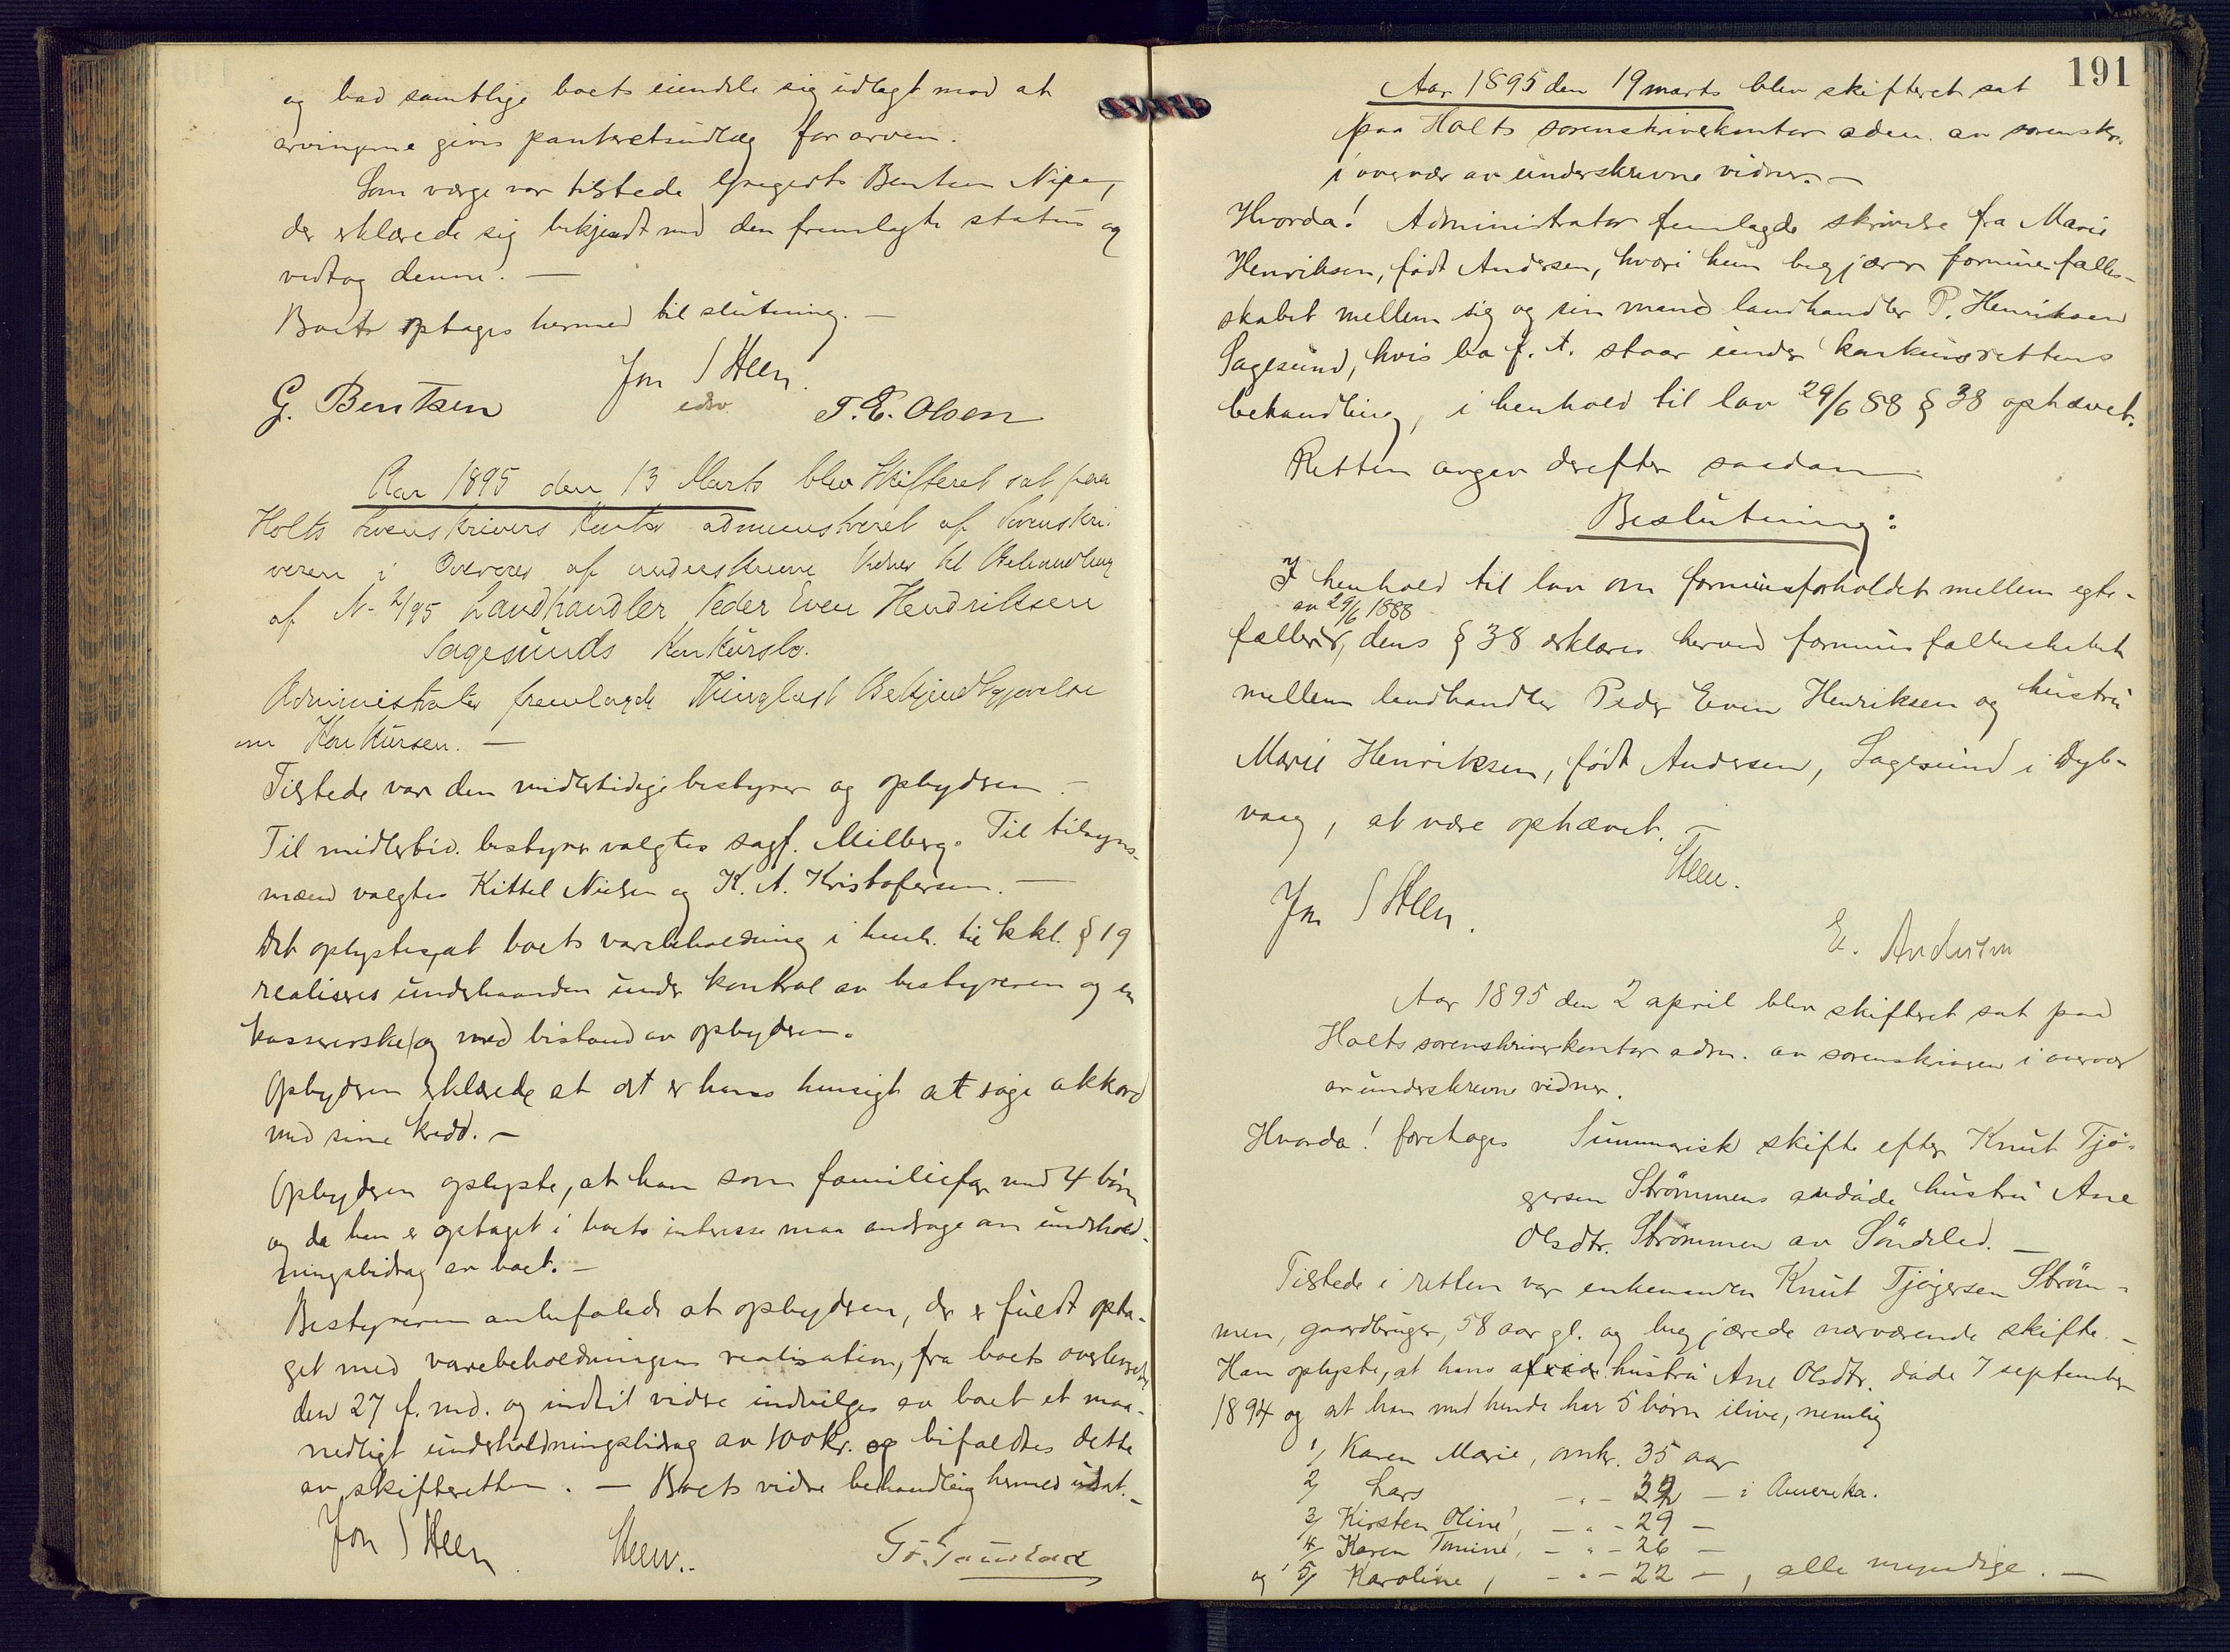 og bad samtlige boets eiendele sig udlagt mod at
arvingerne gives panteretsudlæg for arven.
Som værge var tilstede Gregerts Bentsen Nipe,
der erklærede sig bekjendt med den fremlagte status og
vedtog denne. —
Boets optages hermed til slutning. —
Jon S Steen
edsv.
G. Bentsen
T. E. Olsen
Aar 1895 den 13 Marts blev Skifteret sat paa
Holts Sorenskrivers Kontor administreret af Sorenskri-
veren i Overvær af underskrevne Vidner til Behandling
af N- 2/95 Landhandler Peder Even Hendriksen
Sagesunds Konkursbo.
Administrator fremlagde Thinglæst Bekjendtgjørelse
om Konkursen. —
Tilstede var den midlertidige bestyrer og opbyderen. —
Til midlertid. bestyrer valgtes sagf. Milberg. Til tilsyns-
mænd valgtes Kittel Nielsen og K. A. Kristofersen. —
Det oplystes, at boets varebeholdning i henh. til kkl. § 19
realiseres underhaanden under kontrol av bestyreren og en
kassererske og med bistand av opbyderen.
Opbyderen erklærede at det er hans hensigt at søge akkord
med sine kredd. —
Opbyderen oplyste, at han som familiefar med 4 børn
og da han er optaget i boets interesse maa andrage om underhold-
ningsbidrag av boet. —
Bestyreren anbefalede at opbyderen, der er fuldt opta-
get med varebeholdningens realisation, fra boets overleveret
den 27 f. md. og indtil videre indvilges av boet et maa-
nedligt underholdningsbidrag av 100 kr. og bifaldtes dette
av skifteretten. — Boets videre behandling hermed udsat. —
Jon S Steen
Steen.
191
Aar 1895 den 19 marts blev skifteret sat
paa Holts sorenskriverkontor adm. av sorenskr.
i overvær av underskrevne vidner. —
Hvorda! Administrator fremlagde skrivelse fra Marie
Henriksen, født Andersen, hvori hun begjærer formuesfælles-
skabet mellem sig og sin mand landhandler P. Henriksen
Sagesund, hvis bo f. t. staar under konkursrettens
behandling, i henhold til lov 29/6 88 § 38 ophævet.
Retten avgav derefter saadan
Beslutning:
I henhold til lov om formuesforholdet mellem egte-
av 29/6 1888
fæller, dens § 38 erklæres herved formuesfællesskabet
mellem landhandler Peder Even Henriksen og hustru
Marie Henriksen, født Andersen, Sagesund i Dyb-
vaag, at være ophævet. —
Steen.
Jon S Steen.
E. Andersen
Aar 1895 den 2 april blev skifteret sat paa
Holts sorenskriverkontor adm. av sorenskriveren i overvær
av underskrevne vidner.
Hvorda! foretages Summarisk skifte efter Knut Tjø-
gersen Strømmens avdøde hustru Ane
Olsdtr. Strømmen av Søndeled. —
Tilstede i retten var enkemanden Knut Tjøgersen Strøm-
men, gaardbruger, 58 aar gl. og begjærede nærværende skifte. —
Han oplyste, at hans hustru Ane Olsdtr. døde 7 september
1894 og at han med hende har 5 børn ilive, nemlig
1/ Karen Marie, omkr. 35 aar
2/ Lars — " — 32 — i Amerika.
3/ Kirsten Oline, — " — 29 —
4/ Karen Tomine, — " — 26 —
og 5/ Karoline, — " — 22 —, alle myndige. —